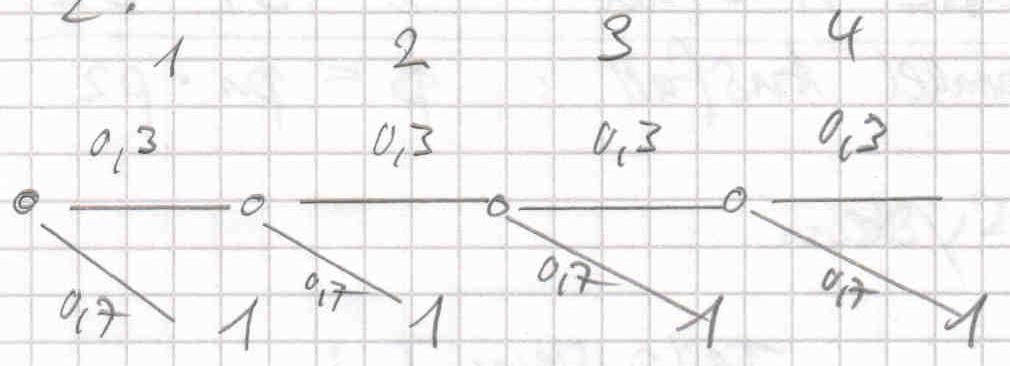 2.
1 2 3 4
0,3 0,3 0,3 0,3
0 0 0 0
0,7 1 0,7 1 0,7 1 0,7 1